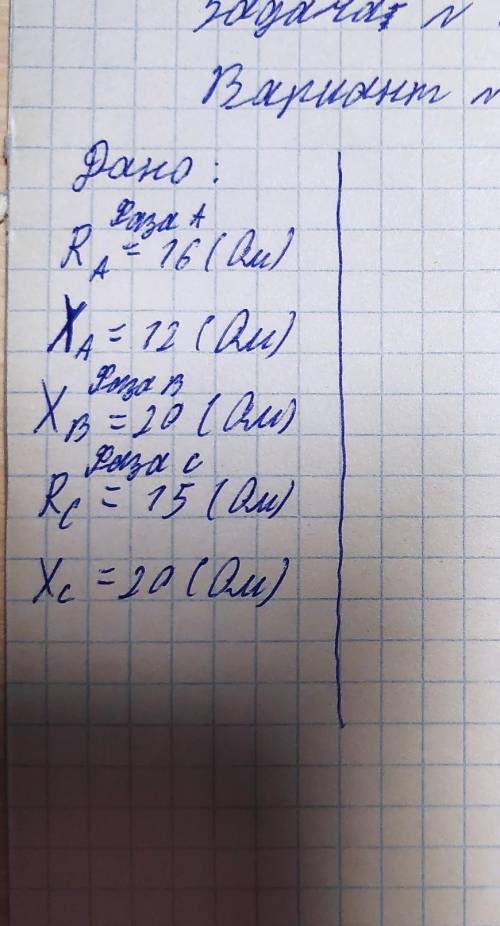 Задача №
Вариант №
Дано:
Фаза А
R_A = 16 (Ом)
X_A = 12 (Ом)
Фаза В
X_B = 20 (Ом)
Фаза С
R_C = 15 (Ом)
X_C = 20 (Ом)